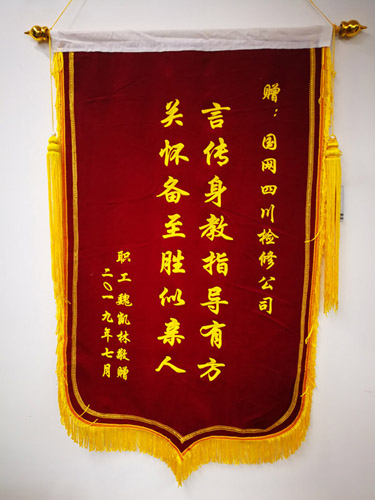 赠：国网四川检修公司
言传身教指导有方
关怀备至胜似亲人
职工魏凯林敬赠
二〇一九年七月